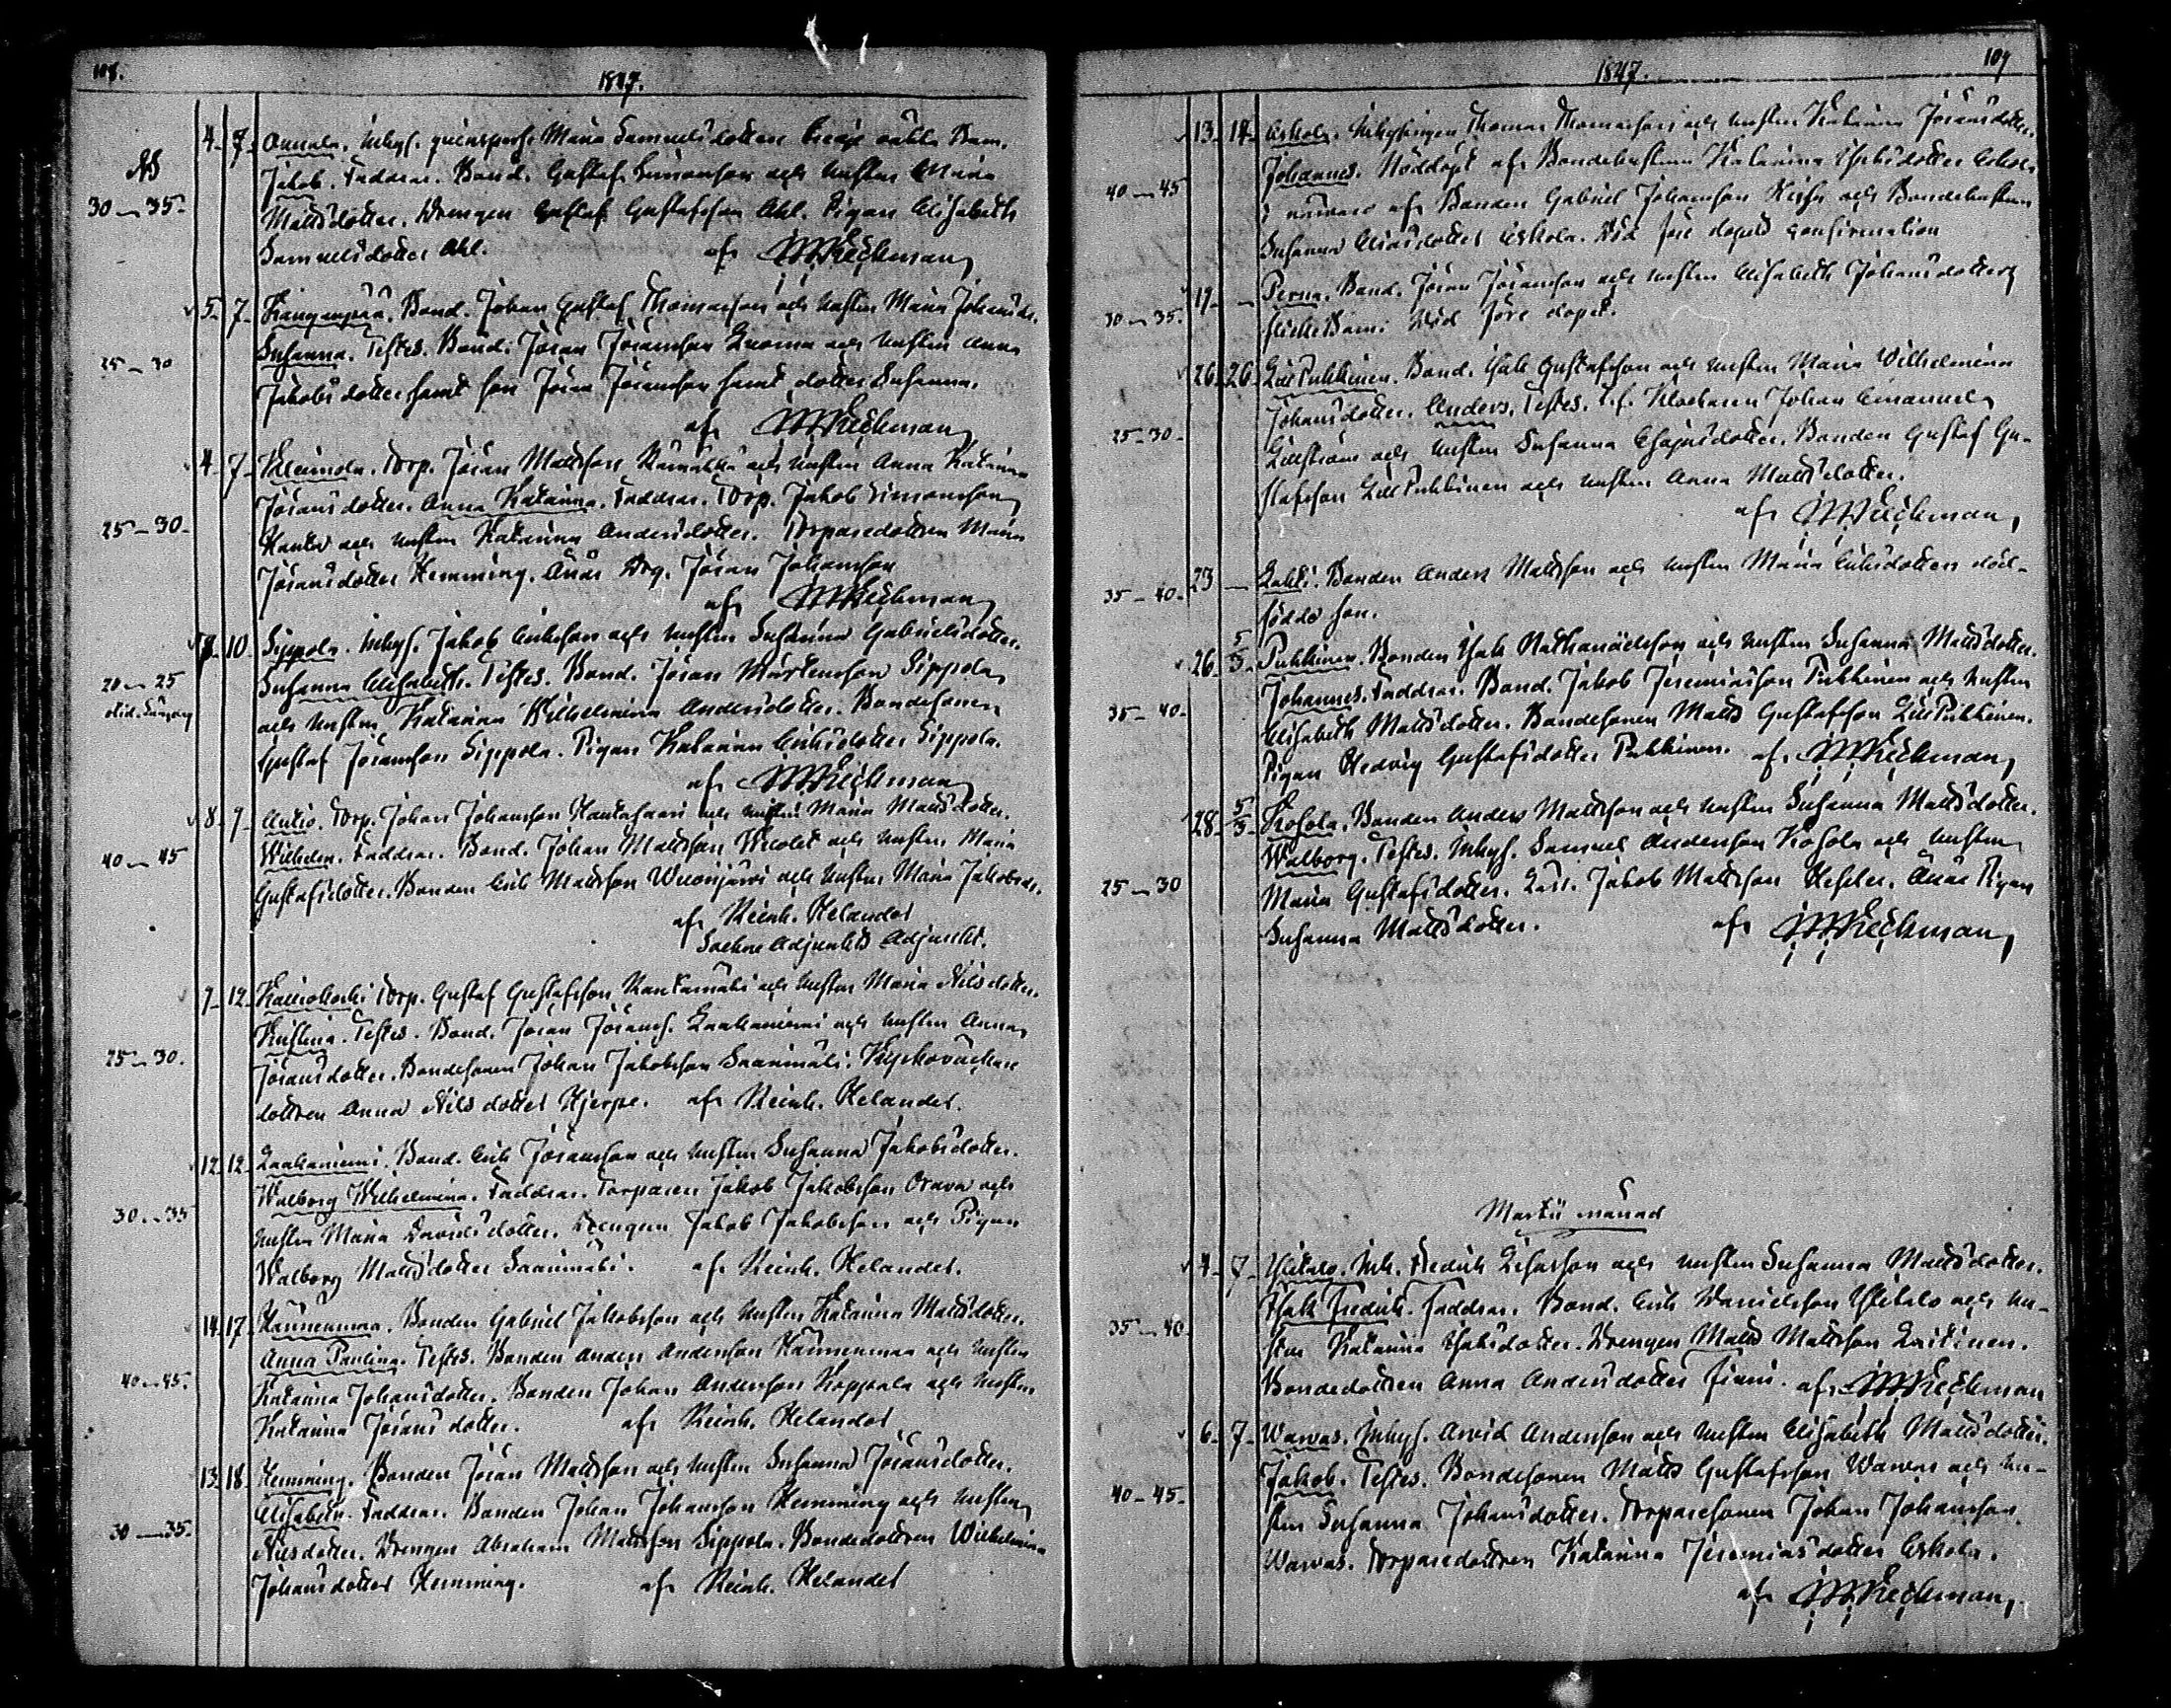 108.
1847.
4. 7. Annala. Inhys. qvinspers. Maria Samuelsdotters oäkta Barn.
Jakob. Faddrar. Bond. Gustaf Simonsson och hustru Maria
30–35. Mattsdotter. Drengen Gustaf Gustafsson Ahl. Pigan Elisabeth
Samuelsdotter Ahl. af
5. 7. Kangenpää. Bond. Johan Gustaf Thomasson och hustru Maria Johansdr.
Susanna. Testes. Bond. Jöran Jöransson Luoma och hustru Anna
25–30 Jakobsdotter samt son Jöran Jöransson samt dotter Susanna.
af
4. 7. Torp. Jöran Mattsson och hustru Anna Katarina
Jöransdotter. Anna Katarina. Faddrar. Torp. Jakob Simonsson
25–30. och hustru Katarina Andersdotter. Torparedottren Maria
Jöransdotter Hemming. Drg. Jöran Johansson
af
8. 10. Sippola. Inhys. Jakob Eriksson och hustru Susanna Gabrielsdotter.
Susanna Elisabeth. Testes. Bond. Jöran Mårtensson Sippola
20–25 och hustru Katarina Wilhelmina Andersdotter. Bondesonen
Gustaf Jöransson Sippola. Pigan Katarina Eriksdotter Sippola.
af
8. 9. Antio. Torp. Johan Johansson Hautasaari och hustru Maria Mattsdotter.
Wilhelm. Faddrar. Bond. Johan Mattsson och hustru Maria
40–45 Gustafsdotter. Bonden Erik Mattsson Wuorijärvi och hustru Maria Jakobsdr.
af Reinh. Helander
Sockne Adjunkts Adjunkt.
9. 12. Torp. Gustaf Gustafsson Rantamäki och hustru Maria Nilsdotter.
Kristina. Testes. Bond. Jöran Jöranss. Laakaniemi och hustru Anna
25–30. Jöransdotter. Bondesonen Johan Jakobsson Saarimäki. Kyrkoväktare
dottren Anna Nilsdotter Hjerpe. af Reinh. Helander.
12. 12. Laakaniemi. Bond. Erik Jöransson och hustru Susanna Jakobsdotter.
Walborg Wilhelmina. Faddrar. Torparen Jakob Jakobsson Orava och
30–35 hustru Maria Davidsdotter. Drengen Jakob Jakobsson och Pigan
Walborg Mattsdotter Saarimäki. af Reinh. Helander.
14. 17. Hännenmaa. Bonden Gabriel Jakobsson och hustru Katarina Mattsdotter.
Anna Paulina. Testes. Bonden Anders Andersson Hännenmaa och hustru
40–45. Katarina Johansdotter. Bonden Johan Andersson Koppala och hustru
Katarina Jöransdotter. af Reinh. Helander
13. 18. Hemming. Bonden Jöran Mattsson och hustru Susanna Jöransdotter.
Elisabeth. Faddrar. Bonden Johan Johansson Hemming och hustru
30–35. Nilsdotter. Drengen Abraham Mattsson Sippola. Bondedottren Wilhelmina
Johansdotter Hemming. af Reinh. Helander
1847. 109
13. 14. Eskola. Inhysingen Thomas Thomasson och hustru Katarina Jöransdotter.
40–45 Johannes. Nöddöpt af Bondehustrun Katarina Isaksdotter Eskola
i närvaro af Bonden Gabriel Johansson och Bondehustrun
Susanna Eliasdotter Eskola. Död före dopets confirmation
19. – Perna. Bond. Jöran Jöransson och hustru Elisabeth Johansdotters
30–35. flickebarn. Död före dopet.
26. 26. Lill Puhkinen. Bond. Isak Gustafsson och hustru Maria Wilhelmina
Johansdotter. Anders. Testes. Klockaren Johan Emanuel
25–30. Lillström och hustru Susanna Esajasdotter. Bonden Gustaf Gu-
stafsson Lill Puhkinen och hustru Anna Mattsdotter.
af
35–40. 23 – Lahti. Bonden Anders Mattsson och hustru Maria Eriksdotters död-
födde son.
26. 5/3. Puhkinen. Bonden Isak Nathanaelsson och hustru Susanna Mattsdotter.
Johannes. Faddrar. Bond. Jakob Jeremiasson Puhkinen och hustru
35–40. Elisabeth Mattsdotter. Bondesonen Matts Gustafsson Lill Puhkinen.
Pigan Hedvig Gustafsdotter Puhkinen. af
28. 5/3. Kosola. Bonden Anders Mattsson och hustru Susanna Mattsdotter.
Walborg. Testes. Inhys. Samuel Andersson Kosola och hustru
25–30 Maria Gustafsdotter. Jakob Mattsson Pigan
Susanna Mattsdotter. af
Martii månad
4. 7. Ylitalo. Inh. Fredrik och hustru Susanna Mattsdotter.
Isak Fredrik. Faddrar. Bond. Erik Danielsson Ylitalo och hu-
35–40. stru Katarina Isaksdotter. Drengen Matts Mattsson Laitinen.
Bondedottren Anna Andersdotter af
6. 7. Warvas. Inhys. Arvid Andersson och hustru Elisabeth Mattsdotter.
Jakob. Testes. Bondesonen Matts Gustafsson Warvas och hu-
40–45. stru Susanna Johansdotter. Torparesonen Johan Johansson
Warvas. Torparedottren Katarina Jeremiasdotter Eskola.
af